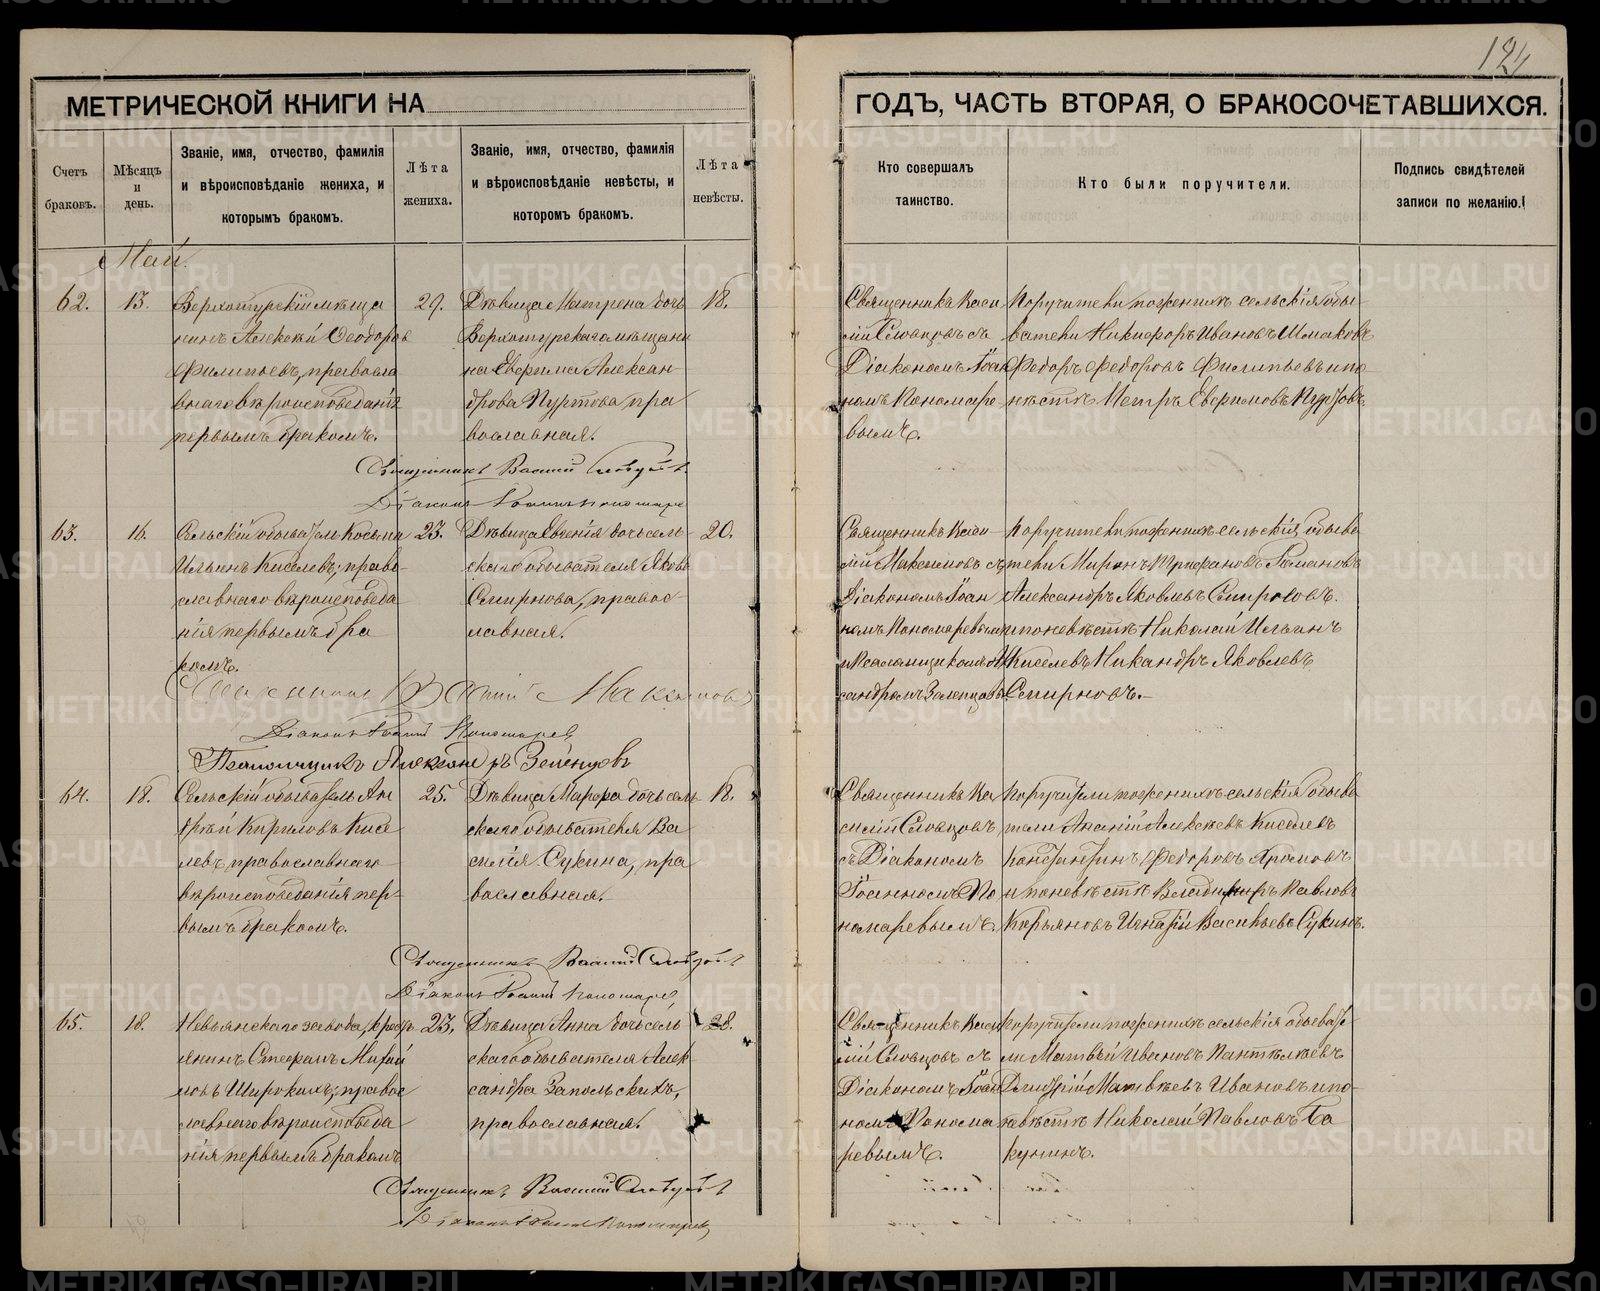 124
МЕТРИЧЕСКОЙ КНИГИ НА
ГОДЪ, ЧАСТЬ ВТОРАЯ, О БРАКОСОЧЕТАВШИХСЯ.
Счетъ браковъ.
Мѣсяцъ и день.
Званіе, имя, отчество, фамилія
и вѣроисповѣданіе жениха, и
которымъ бракомъ.
Лѣта
жениха.
Званіе, имя, отчество, фамилія
и вѣроисповѣданіе невѣсты, и
которомъ бракомъ.
Лѣта
невѣсты.
Кто совершалъ
таинство.
Кто были поручители.
Подпись свидѣтелей
записи по желанію.
Май.
62.
13.
Верхотурскій мѣща
нинъ Алексѣй Ѳеодоровъ
Филипьевъ, правосла
внаго вѣроисповѣданія
первымъ бракомъ.
29.
Дѣвица Матрена дочь
Верхотурскаго мѣщани
на Евфима Алексан-
дрова Пуртова пра
вославная.
18.
Священникъ Васи
лій Словцовъ съ
Діакономъ Іоан
номъ Пономаре
вымъ.
Поручители по женихѣ сельскія обы
ватели Никифоръ Ивановъ Шмаковъ
Федоръ Федоровъ Филипьевъ и по
невѣстѣ Петръ Евфимовъ Пуртовъ.
Священникъ Василій Словцовъ
Діаконъ Іоаннъ Пономарев
63.
16.
Сельскій обыватель Косьма
Ильинъ Киселевъ, право-
славнаго вѣроисповѣда
нія первымъ бра
комъ.
23.
Дѣвица Евгенія дочь сель-
скаго обывателя Якова
Смирнова, правос-
лавная.
20.
Священникъ Васи-
лій Максимовъ съ
Діакономъ Іоан
номъ Пономаревым
и Псаломщикомъ Але
ксандромъ Зеленцовым
Поручители по женихѣ сельскія обыва
тели Миронъ Трифановъ Романовъ
Александръ Яковлевъ Смирновъ.
и по невѣстѣ Николай Ильинъ
Киселевъ Никандръ Яковлевъ
Смирновъ.
Священникъ Василій Максимовъ
Діаконъ Іоаннъ Пономарев
Псаломщикъ Александръ Зеленцовъ
64.
18.
Сельскій обыватель Ан
дрей Кириловъ Кисе
левъ, православнаго
вѣроисповѣданія пер-
вымъ бракомъ.
25.
Дѣвица Марфа дочь сель
скаго обывателя Ва
силія Сукина, пра
вославная.
18.
Священникъ Ва
силій Словцовъ
съ Діакономъ
Іоанномъ По
номаревымъ.
Поручители по женихѣ сельскія обыва
тели Ананій Алексѣевъ Киселевъ
Константинъ Федоровъ Хромовъ
и по невѣстѣ Владимиръ Павловъ
Карьяновъ Игнатій Васильевъ Сукинъ.
Священникъ Василій Словцовъ
Діаконъ Іоаннъ Пономарев
65.
18.
Невьянскаго завода, крест
янинъ Стефанъ Михай
ловъ Широкихъ, правос
лавнаго вѣроисповѣда
нія первымъ бракомъ
23.
Дѣвица Анна дочь сель
скаго обывателя Алек
сандра Запольскихъ,
православная.
Священникъ Васи
лій Словцовъ съ
Діакономъ Іоан
номъ Понома
ревымъ.
Поручители по женихѣ сельскія обывате
ли Матвѣй Ивановъ Пантелѣевъ
Дмитрій Матвѣевъ Ивановъ и по-
невѣстѣ Николай Павловъ Ба
кунинъ.
Священникъ Василій Словцовъ
Діаконъ Іоаннъ Пономарев
METRIKI.GASO-URAL.RU